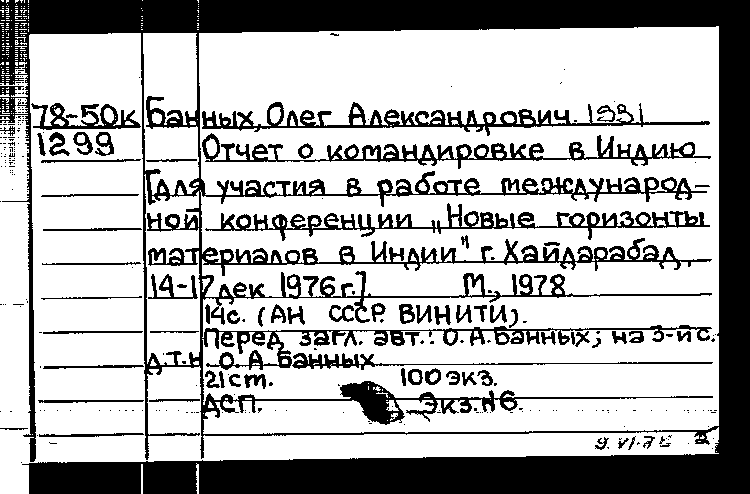 78-50к Банных, Олег Александрович. 1931
1299 Отчет о командировке в Индию
[для участия в работе международ=
ной конференции „Новые горизонты
материалов в Индии" г. Хайдарабад,
14-17 дек 1976 г.]. М., 1978.
14с. (АН СССР. ВИНИТИ).
Перед загл. авт.: О.А.Банных; на 3-й с.
д.т.н. О.А Банных
21ст. 100 экз.
ДСП. Экз.№6.